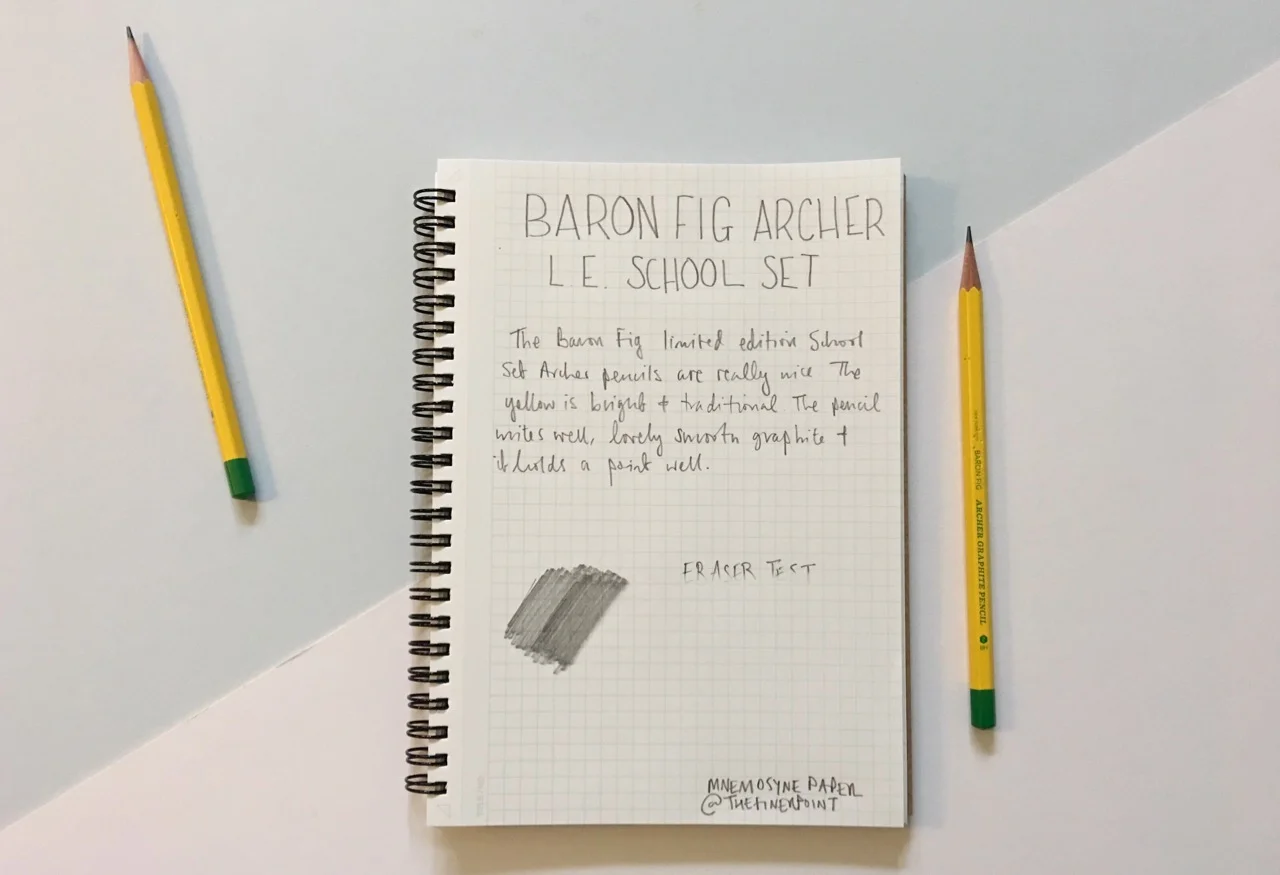 BARON FIG ARCHER
L.E. SCHOOL SET
The Baron Fig limited edition School
Set Archer pencils are really nice The
yellow is bright + traditional. The pencil
writes well, lovely smooth graphite +
it holds a point well.
ERASER TEST
MNEMOSYNE PAPER
@THEFINERPOINT
BARON FIG ARCHER GRAPHITE PENCIL